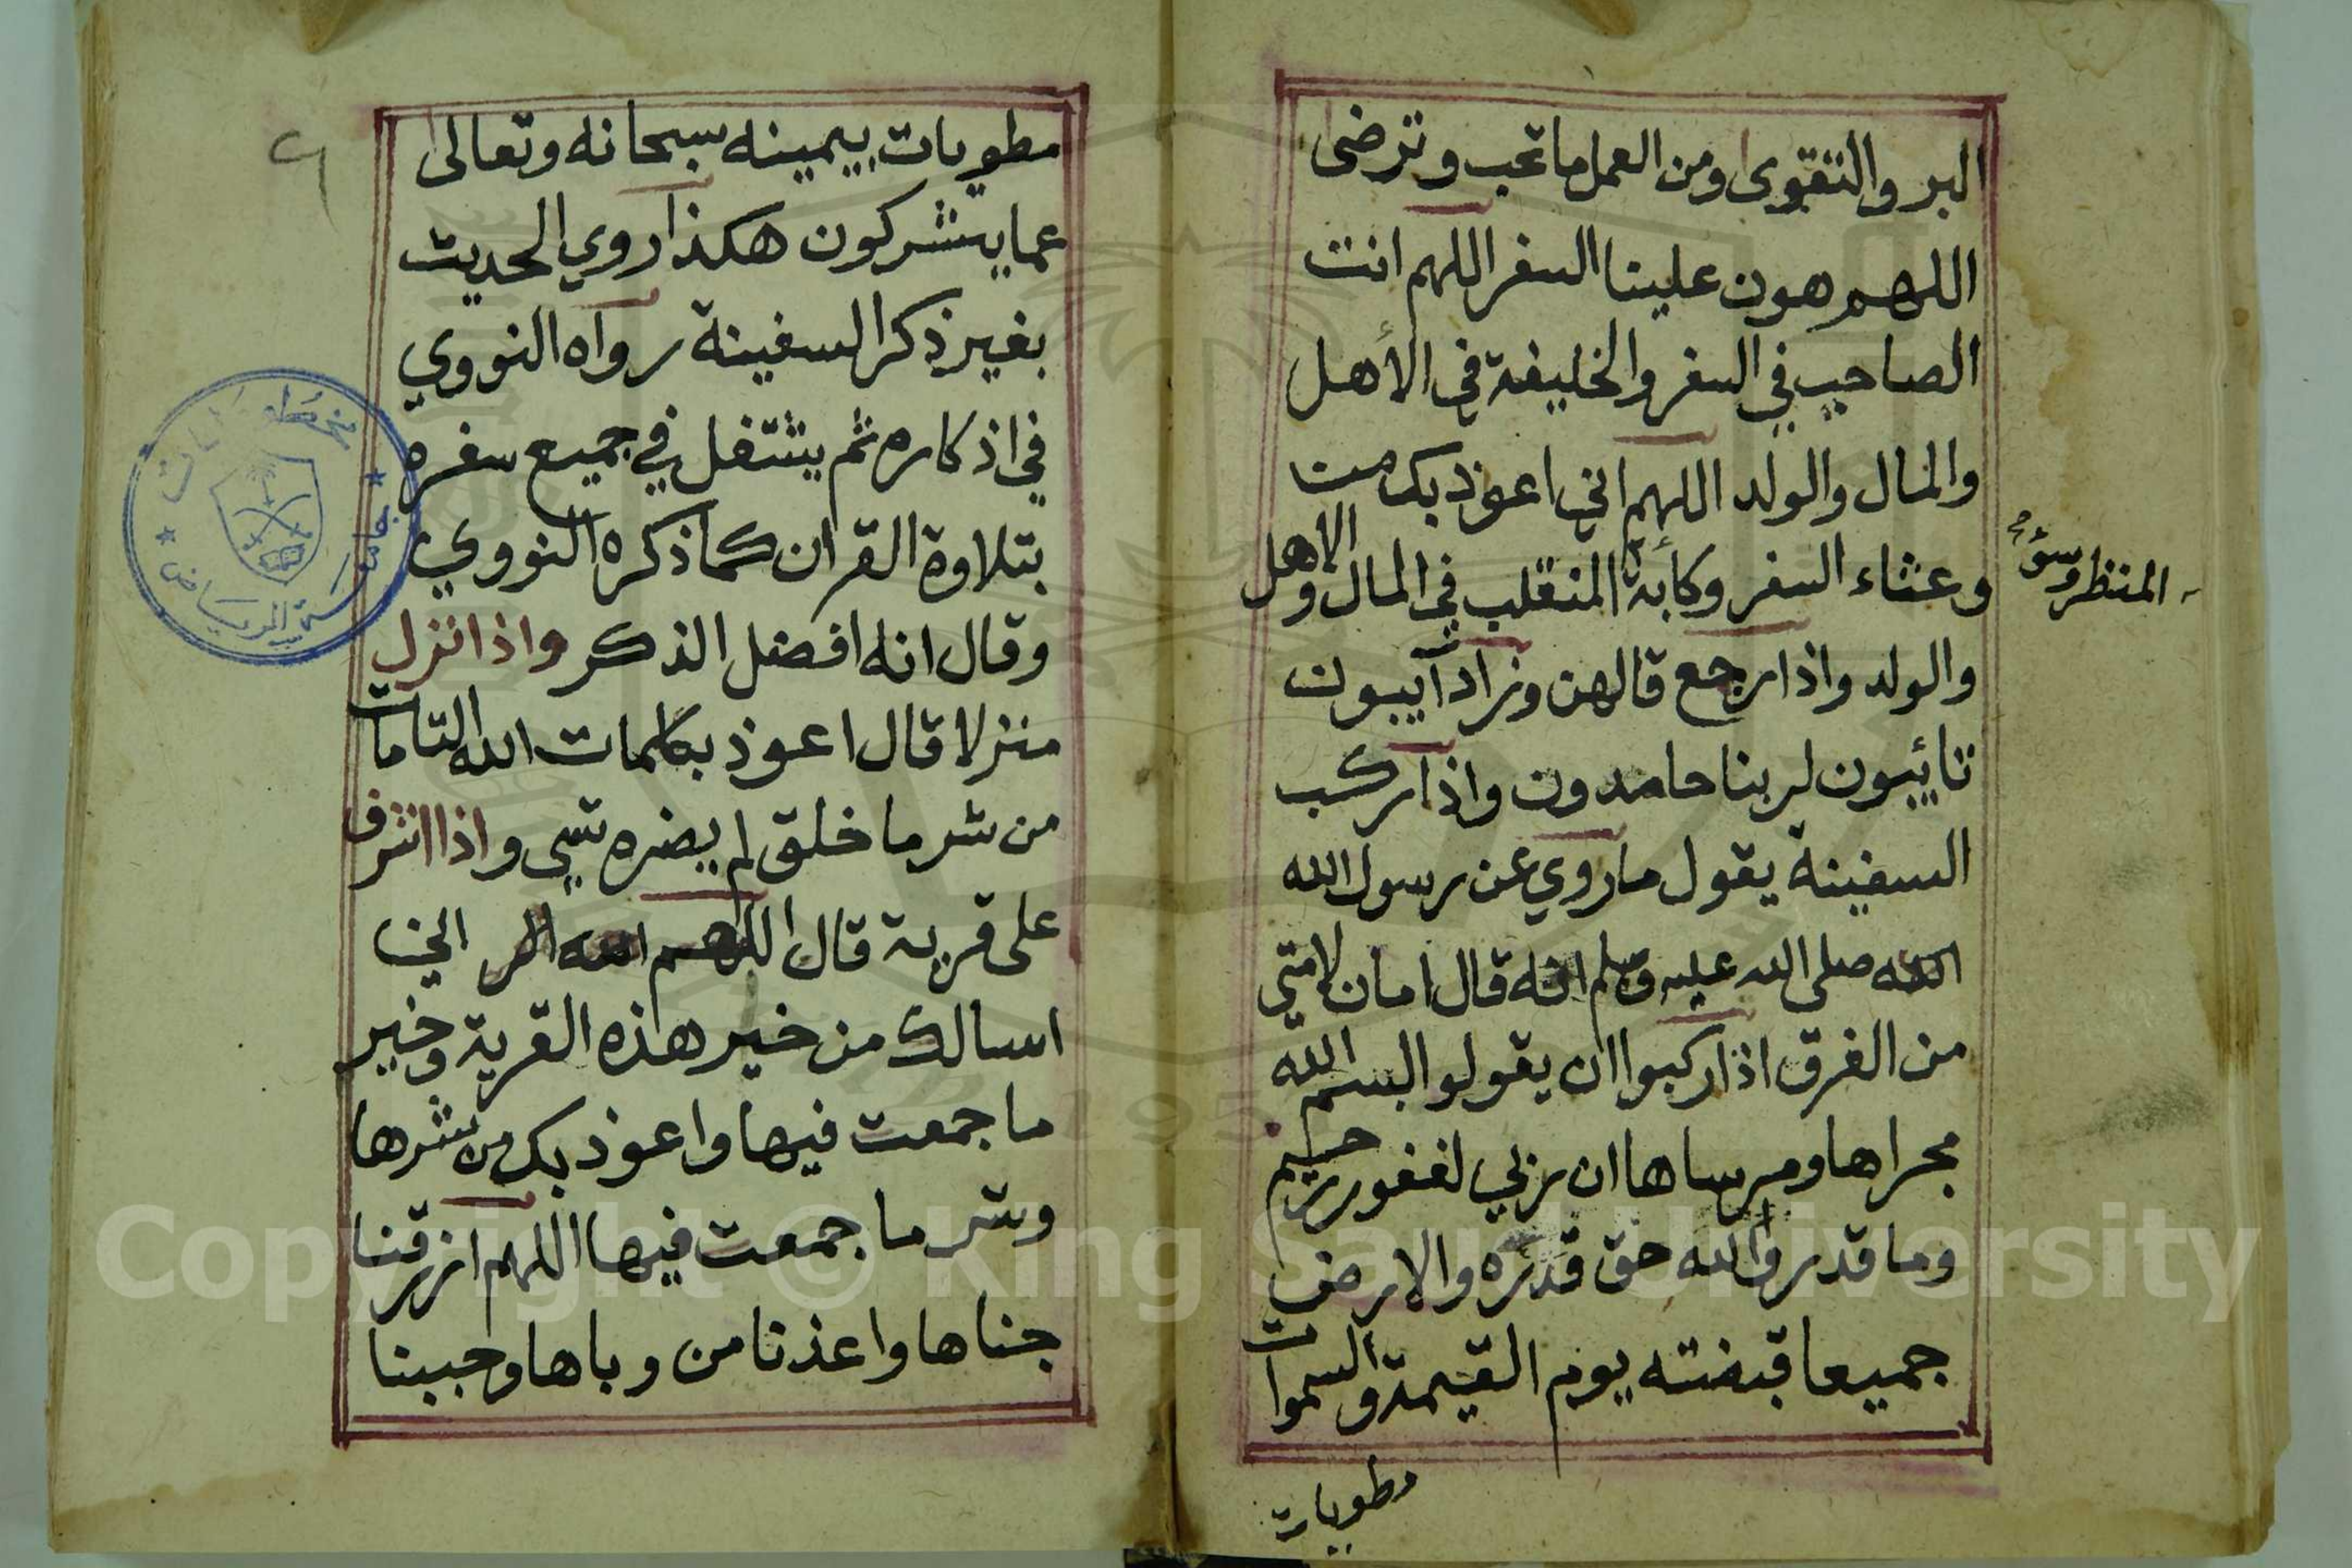 البر والتقوى ومن العمل ما تحب وترضى
اللهم هون علينا السفر اللهم انت
الصاحب في السفر والخليفة في الأهل
والمال والولد اللهم اني اعوذ بك من
وعثاء السفر وكأبة المنقلب في المال والاهل
المنظر وسوء
والولد واذا رجع قالهن وزاد آيبون
تائبون لربنا حامدون واذا ركب
السفينة يقول ما روي عن رسول الله
الله صلى الله عليه وسلم انه قال امان لامتي
من الغرق اذا ركبوا ان يقولوا بسم الله
مجراها ومرساها ان ربي لغفور رحيم
وما قدروا الله حق قدره والارض
جميعا قبضته يوم القيمة والسموات
مطويات
٦
مطويات بيمينه سبحانه وتعالى
عما يشركون هكذا روي الحديث
بغير ذكر السفينة رواه النووي
في اذكاره ثم يشتغل في جميع سفره
بتلاوة القران كما ذكره النووي
وقال انه افضل الذكر واذا نزل
منزلا قال اعوذ بكلمات الله التامات
من شر ما خلق لم يضره شي واذا اشرف
على قرية قال اللهم اني
اسالك من خير هذه القرية وخير
ما جمعت فيها واعوذ بك من شرها
وشر ما جمعت فيها اللهم ارزقنا
جناها واعذنا من وباها وحببنا
جامعة الرياض
مخطوطات
Copyright © King Saud University